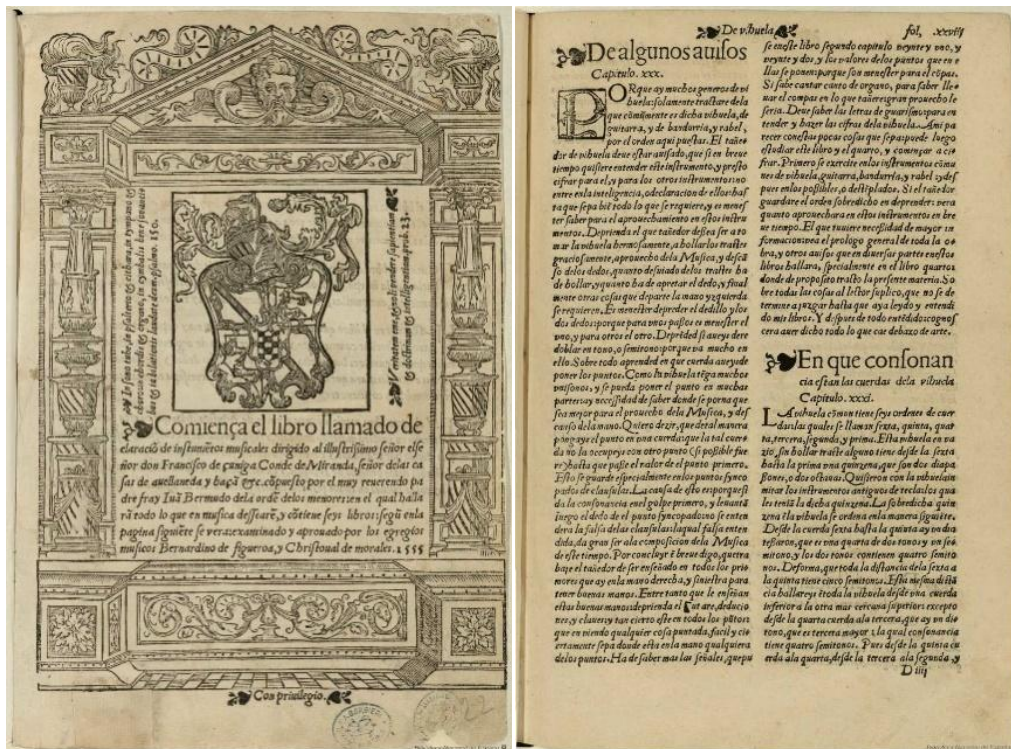 In sono tube, in psalterio & cithara, in tympano &
choro, in chordis & organo, in cymbalis bene sonanti-
bus
laudate deum psalmo. 150.
& doctrinam & intelligentiam. prob. 23.
Comiença el libro llamado de
claraciõ de instumẽtos musicales dirigido al illustrissimo señor el se
ñor don Francisco de çuniga Conde de Miranda, señor delas ca
sas de auellaneda y baçã &c. cõpuesto por el muy reuerendo pa
dre fray Iuã Bermudo dela ordẽ delos menores: en el qual halla
rã todo lo que en musica dessearẽ, y cõtiene seys libros: segũ en la
pagina siguiẽte se vera: examinado y aprouado por los egregios
musicos Bernardino de figueroa, y Christoual de morales. 1555
Con priuilegio.
De vihuela
fol, xxviij
De algunos auisos
Capitulo. xxx.
POR que ay muchos generos de vi
huela: solamente tractare dela
que cõmũmente es dicha vihuela, de
guitarra, y de bandurria, y rabel,
por el orden aqui puestas. El tañe-
dor de vihuela deue estar auisado, que si en breue
tiempo quisiere entender este instrumento, y presto
cifrar para el, y para los otros instrumentos: no
entre en la inteligencia, o declaracion de ellos: has
ta que sepa biẽ todo lo que se requiere, y es menes
ter saber para el aprouechamiento en estos instru
mentos. Deprienda el que tañedor dessea ser a to
mar la vihuela hermosamente, a hollar los trastes
graciosamente, a prouecho dela Musica, y descã
so delos dedos, quanto desuiado delos trastes ha
de hollar, y quanto ha de apretar el dedo, y final
mente otras cosas que de parte la mano yzquierda
se requieren. Es menester depreder el dedillo y los
dos dedos: porque para vnos passos es menester el
vno, y para otros el otro. Depreded si aueys de re
doblar en tono, o semitono: porque va mucho en
ello. Sobre todo aprended en que cuerda aueys de
poner los puntos. Como la vihuela tẽga muchos
vnisonos, y se pueda poner el punto en muchas
partes: ay necessidad de saber donde se porna que
sea mejor para el prouecho dela Musica, y des
canso dela mano. Quiero dezir, que de tal manera
pongays el punto en vna cuerda: que la tal cuer
da no la occupeys con otro punto (si possible fue
re) hasta que passe el valor de el punto primero.
Esto se guarde especialmente en los puntos synco
pados de clausulas. La causa de esto es: porque si
da la consonancia en el golpe primero, y leuantã
luego el dedo de el punto syncopado: no se enten
dera la falsa delas clausulas: la qual falsa enten
dida, da gran ser ala composicion dela Musica
de este tiempo. Por concluyr ẽ breue digo, que tra
baje el tañedor de ser enseñado en todos los pri
mores que ay en la mano derecha, y siniestra para
tener buenas manos. Entre tanto que le enseñan
estas buenas manos: deprienda el Γ ut are, deducio
nes, y claues: y tan cierto este en todos los pũtos:
que en viendo qualquier cosa puntada, facil y cier
tamente sepa donde esta en la mano qualquiera
delos puntos. Ha de saber mas las señales, que pu
se en este libro segundo capitulo veynte y vno, y
veynte y dos, y los valores delos puntos que en e
llas se ponen: porque son menester para el cõpas.
Si sabe cantar canto de organo, para saber lle-
uar el compas en lo que tañere: gran prouecho le
seria. Deue saber las letras de guarismo: para en
tender y hazer las cifras dela vihuela. Ami pa
recer con estas pocas cosas que sepa: puede luego
estudiar este libro y el quarto, y començar a ci-
frar. Primero se exercite en los instrumentos cõmu
nes de vihuela, guitarra, bandurria, y rabel: y des
pues en los possibles, o destẽplados. Si el tañedor
guardare el orden sobredicho en deprender: vera
quanto aprouechara en estos instrumentos en bre
ue tiempo. El que tuuiere necessidad de mayor in
formacion: vea el prologo general de toda la o-
bra, y otros auisos que en diuersas partes en estos
libros hallara, specialmente en el libro quarto:
donde de proposito tracto la presente materia. So
bre todas las cosas al lector suplico, que no se de-
termine a juzgar hasta que aya leydo y entendi
do mis libros. Y despues de todo entẽdido: cognos
cera auer dicho todo lo que cae debaxo de arte.
En que consonan
cia estan las cuerdas dela vihuela
Capitulo. xxxi.
LA vihuela cõmun tiene seys ordenes de cuer-
das: las quales se llaman sexta, quinta, quar
ta, tercera, segunda, y prima. Esta vihuela en va
zio, sin hollar traste alguno tiene desde la sexta
hasta la prima vna quinzena, que son dos diapa
ssones, o dos octauas. Quisieron con la vihuela in
mitar los instrumentos antiguos de teclas: los qua
les teniã la dicha quinzena. La sobredicha quin
zena ẽ la vihuela se ordena en la manera siguiẽte.
Desde la cuerda sexta hasta la quinta ay vn dia
tessaron, que es vna quarta de dos tonos y vn se-
mitono, y los dos tonos contienen quatro semito
nos. De forma, que toda la distancia dela sexta a
la quinta tiene cinco semitonos. Esta mesma distã
cia hallareys ẽ toda la vihuela desde vna cuerda
inferior a la otra mas cercana superior: excepto
desde la quarta cuerda ala tercera, que ay vn di
tono, que es tercera mayor, la qual consonancia
tiene quatro semitonos. Pues desde la quinta cu
erda ala quarta, desde la tercera ala segunda, y
D iiij